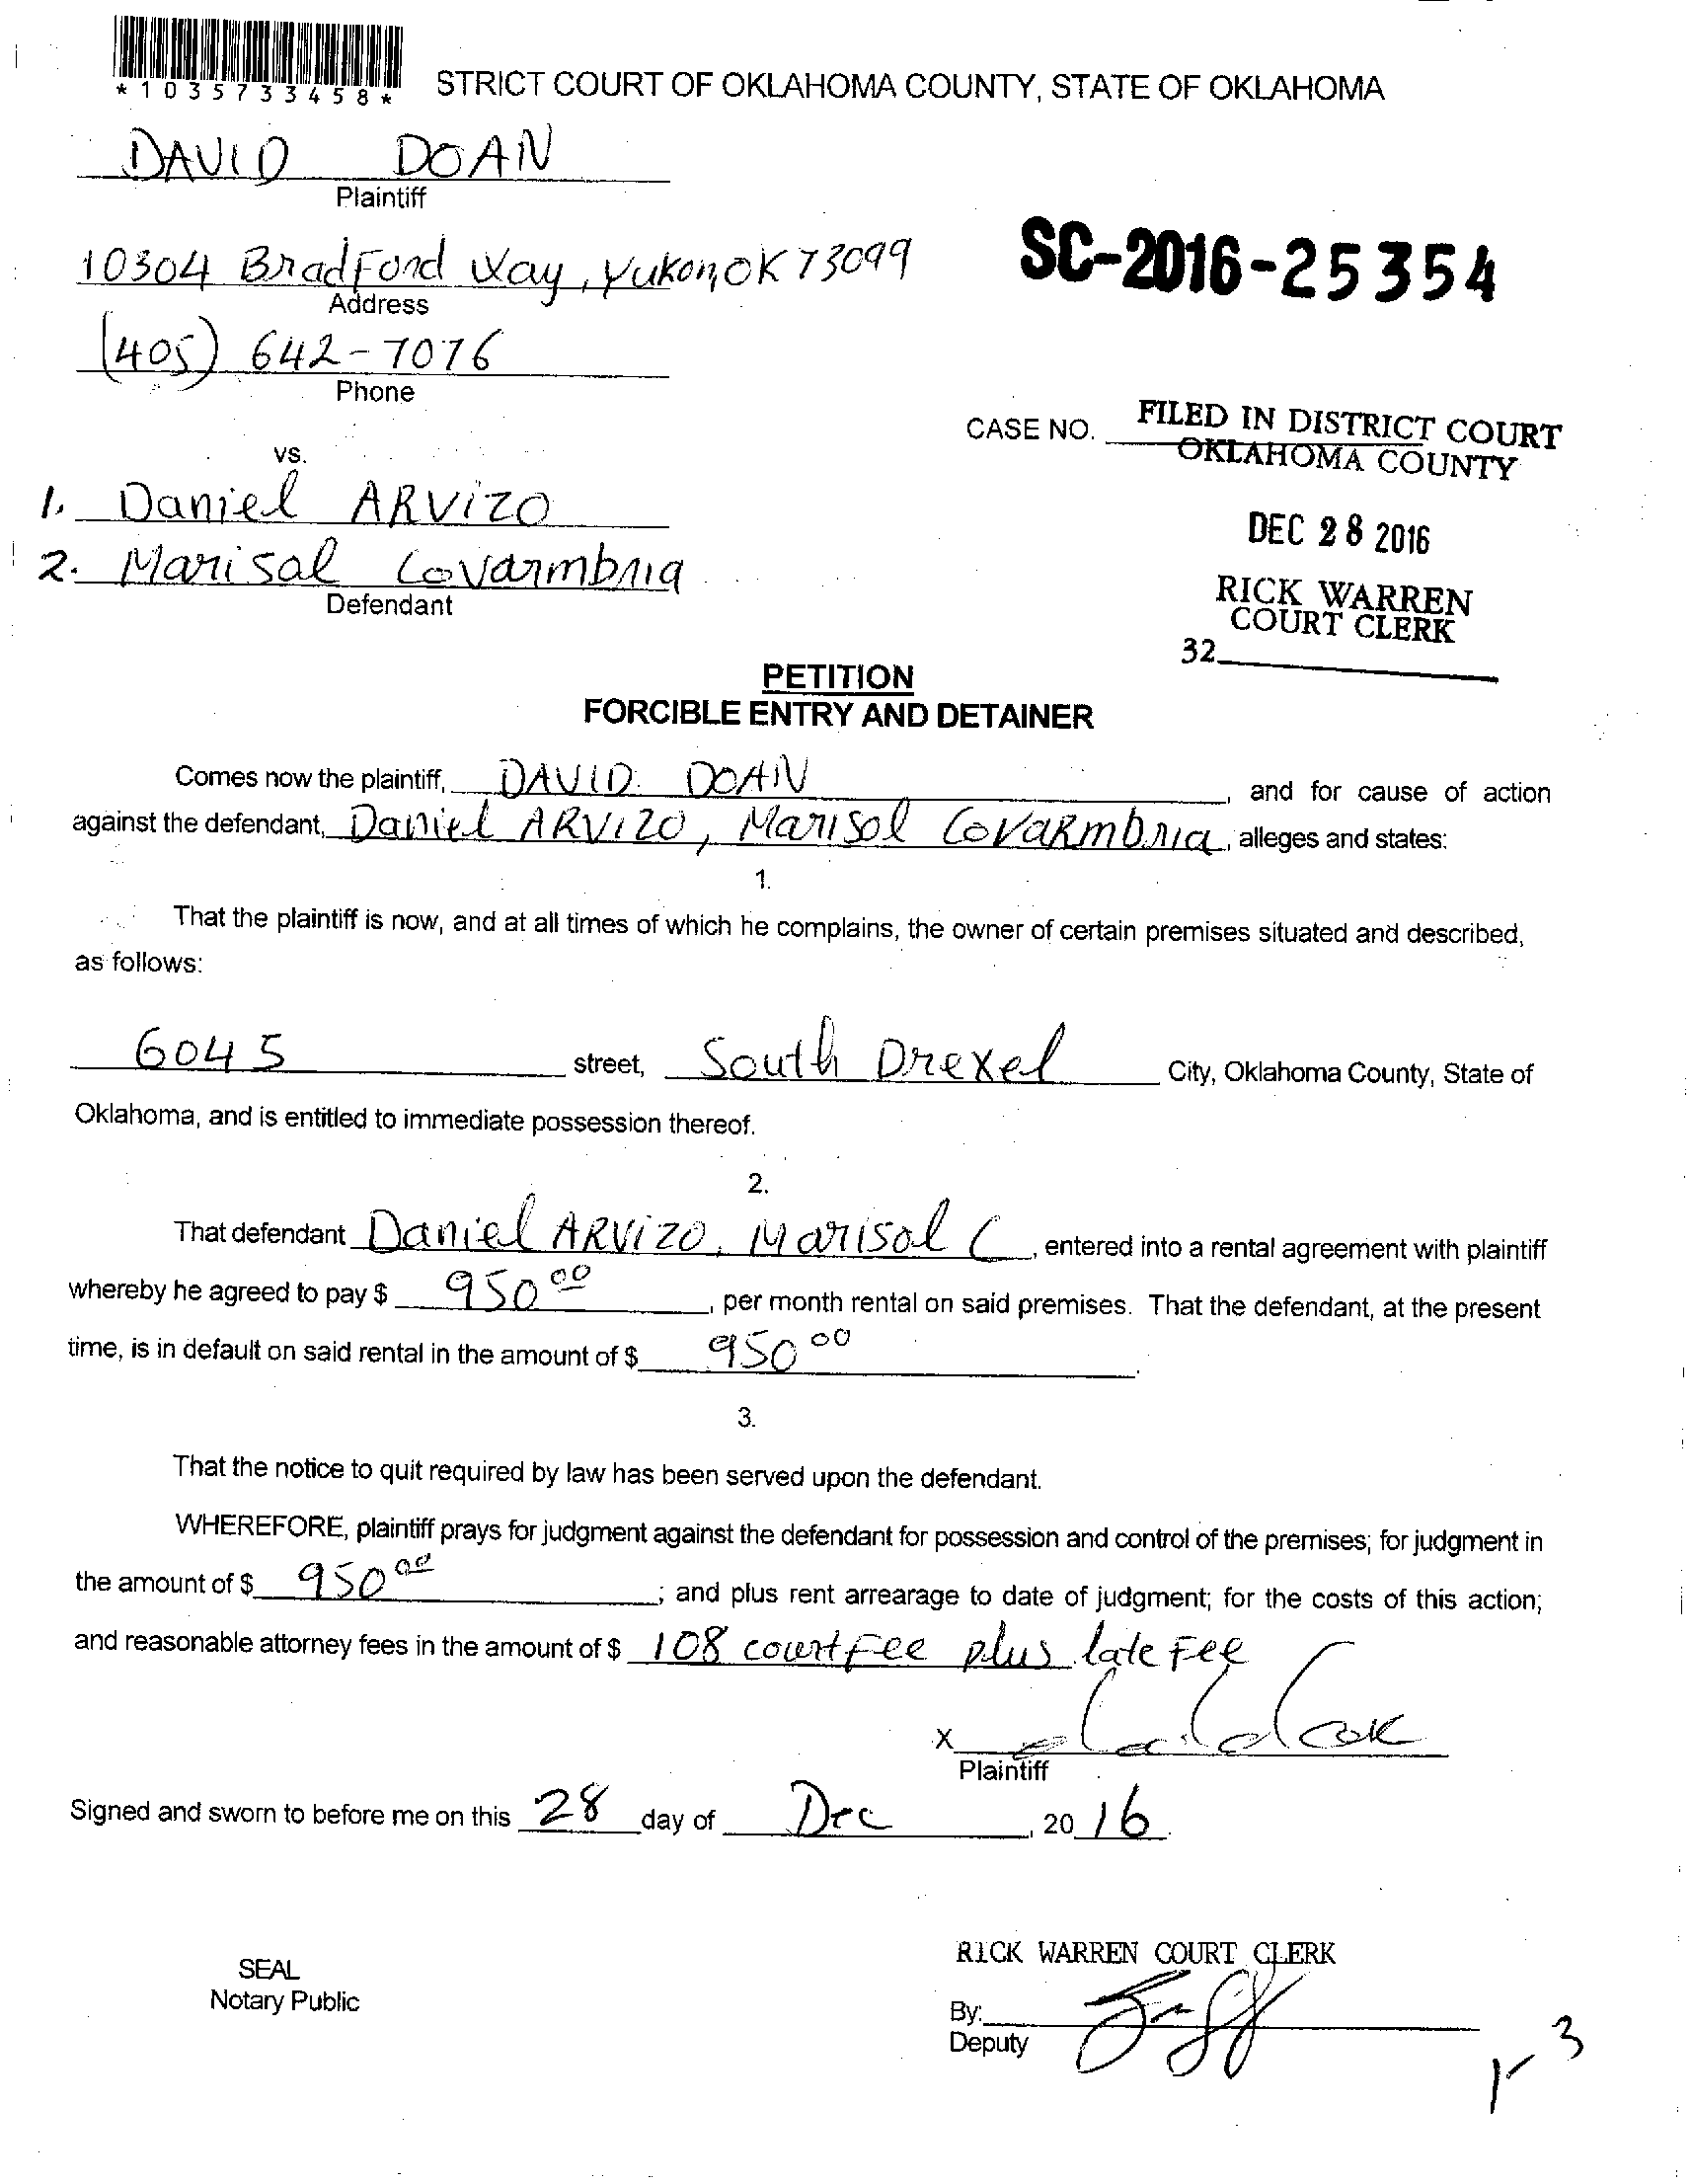 *1035733458*
STRICT COURT OF OKLAHOMA COUNTY, STATE OF OKLAHOMA
DAVID DOAN
Plaintiff
10304 Bradford Way, Yukon, OK 73099
Address
SC-2016-25354
(405) 642-7076
Phone
CASE NO.
FILED IN DISTRICT COURT
OKLAHOMA COUNTY
vs.
1. Daniel ARVIZO
DEC 28 2016
2. Marisol Covarmbria
Defendant
RICK WARREN
COURT CLERK
32
PETITION
FORCIBLE ENTRY AND DETAINER
Comes now the plaintiff, DAVID DOAN, and for cause of action
against the defendant, Daniel ARVIZO, Marisol Covarmbria, alleges and states:
1.
That the plaintiff is now, and at all times of which he complains, the owner of certain premises situated and described,
as follows:
6045 street, South Drexel City, Oklahoma County, State of
Oklahoma, and is entitled to immediate possession thereof.
2.
That defendant Daniel ARVIZO, Marisol C, entered into a rental agreement with plaintiff
whereby he agreed to pay $ 950 00, per month rental on said premises. That the defendant, at the present
time, is in default on said rental in the amount of $ 950 00.
3.
That the notice to quit required by law has been served upon the defendant.
WHEREFORE, plaintiff prays for judgment against the defendant for possession and control of the premises; for judgment in
the amount of $ 950 00; and plus rent arrearage to date of judgment; for the costs of this action;
and reasonable attorney fees in the amount of $ 108 court Fee plus late Fee
X
Plaintiff
Signed and sworn to before me on this 28 day of Dec, 20 16.
RICK WARREN COURT CLERK
SEAL
Notary Public
By:
Deputy
1-3